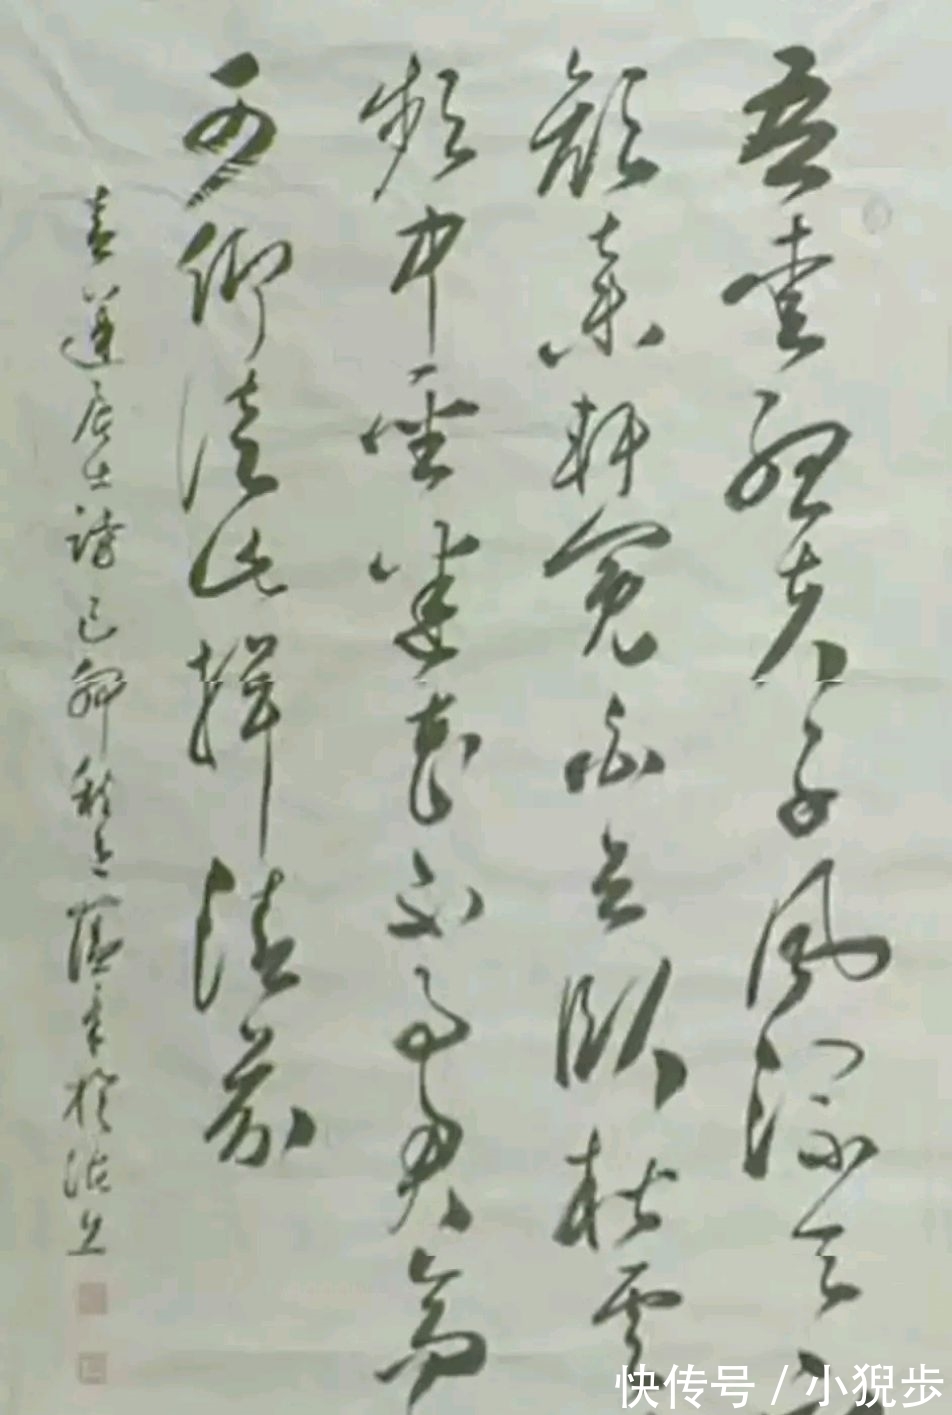 吾爱孟夫子风流天下
颜弃轩冕白首卧松云
频中圣迷花不事君高
可仰从此揖清芬
青莲居士诗己卯秋月
快传号 / 小猊步